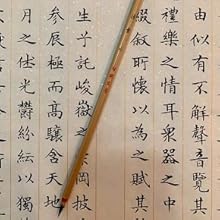 由似有不解音覽其
禮樂之情耳眾器之中
綴敘所懷以為之賦其
生兮託峻嶽之崇岡披
參辰極而高驤含天地
月之休光鬱紛紜以獨